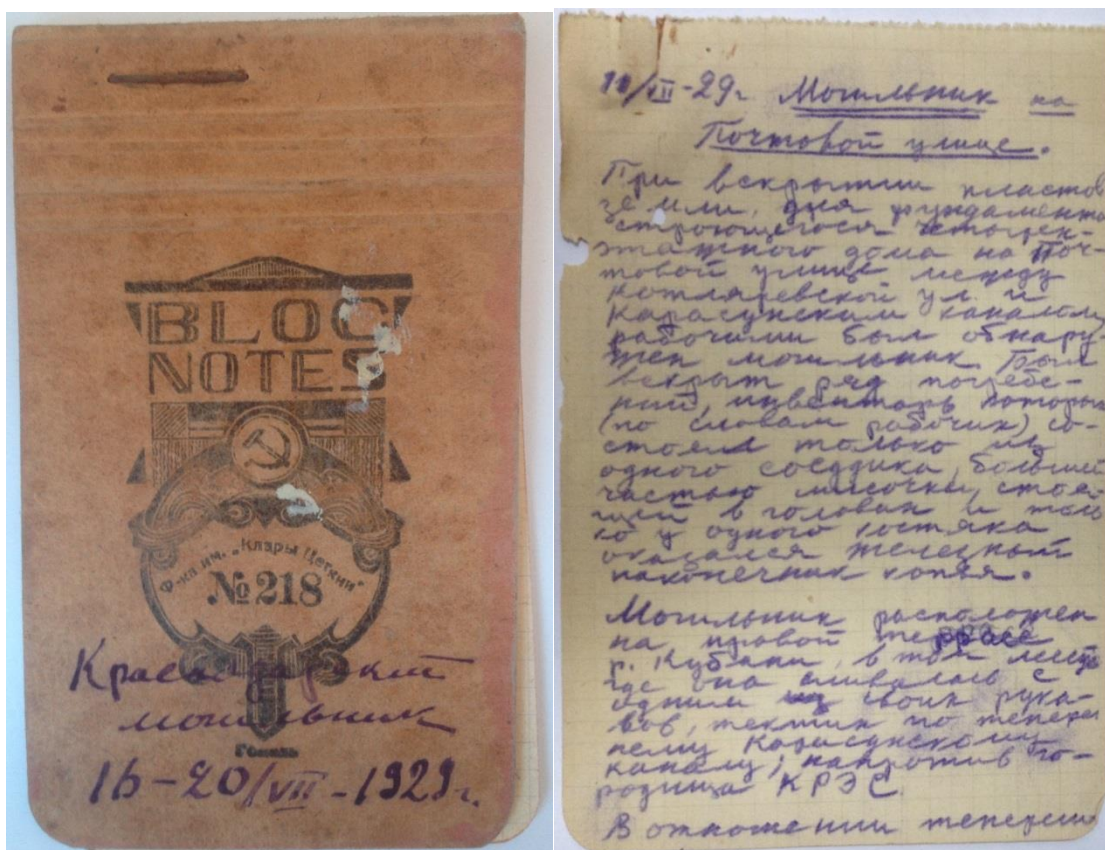 BLOC
NOTES
Ф-ка им. „Клары Цеткин“
№ 218
Краснодарский
могильник
Гомель
16-20/VII-1929 г.
/VII-29 г. Могильник на
Почтовой улице.
При вскрытии пластов
земли, для фундамента
строющегося четырех-
этажного дома на Поч-
товой улице между
Котляревской ул. и
Карасунским каналом,
рабочими был обнару-
жен могильник. Был
вскрыт ряд погребе-
ний, инвентарь которых
(по словам рабочих) со-
стоял только из
одного сосудика, большей
частью мисочки, стоя-
щей в головах и толь
ко у одного костяка
оказался железный
наконечник копья.
Могильник расположен
на правой террасе
р. Кубани, в том месте
где она сливалась с
одним из своих рука-
вов, текших по тепереш
нему Карасунскому
каналу; напротив го-
родища КРЭС.
В отношении